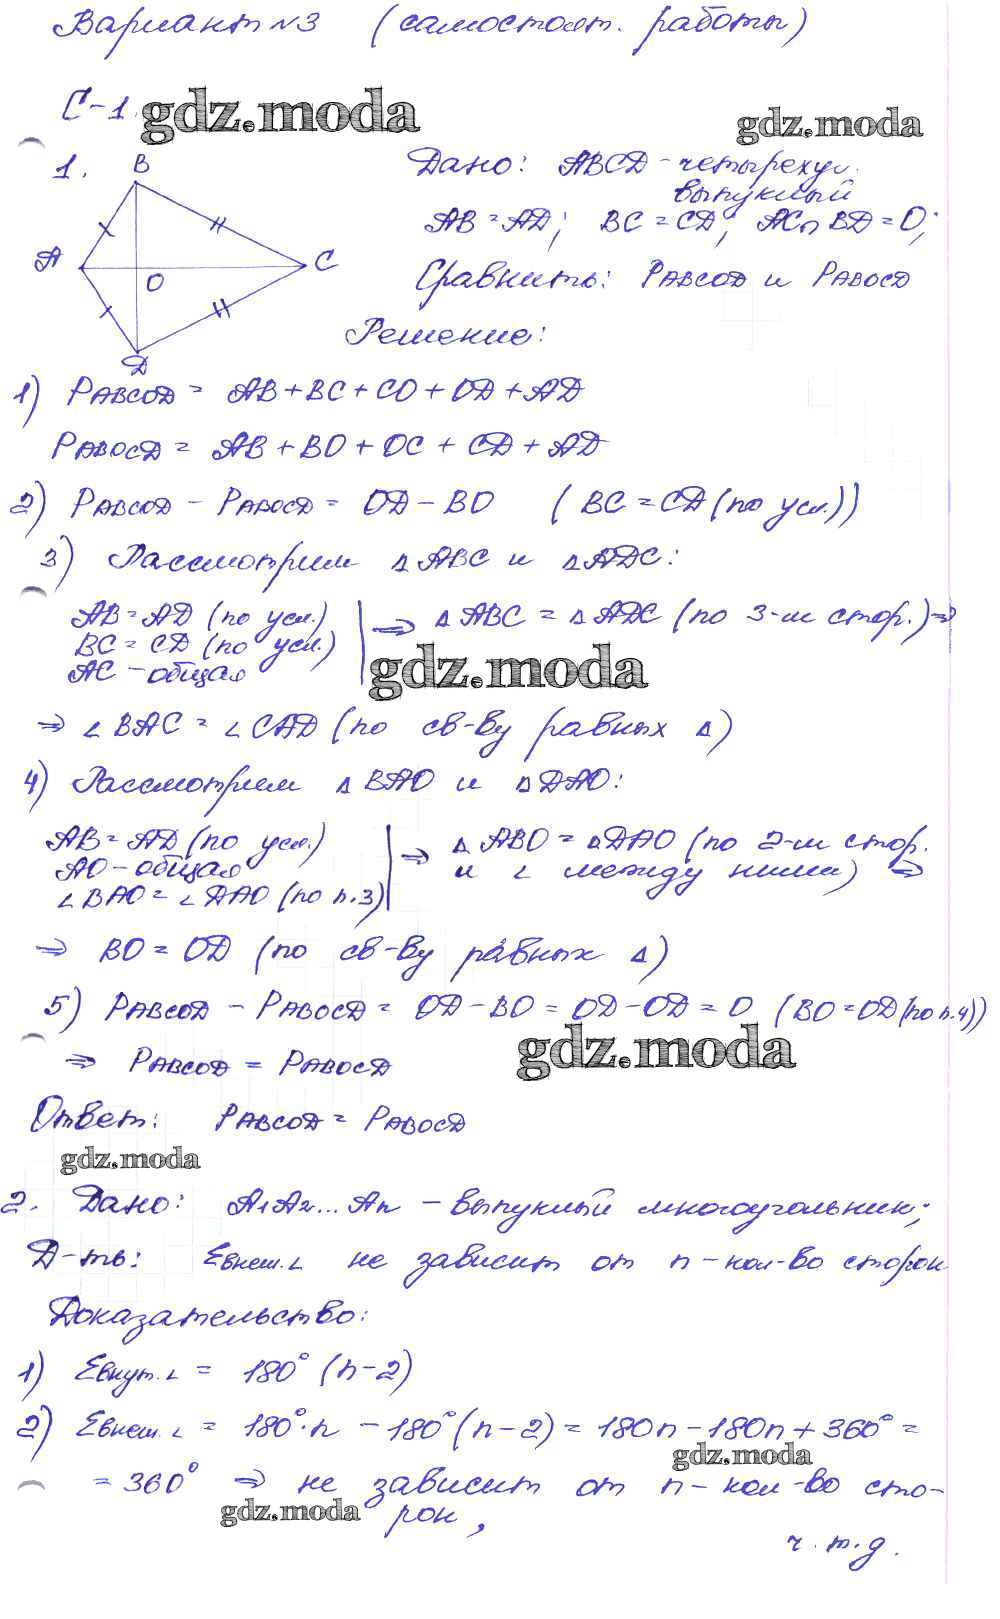 Вариант №3 (самостоят. работы)
С-1.
gdz.moda
gdz.moda
1.
B
A
C
O
D
Дано: ABCD - четырехуг.
выпуклый
AB = AD; BC = CD; AC ∩ BD = O;
Сравнить: PABCOD и PABOCD
Решение:
1) PABCOD = AB + BC + CO + OD + AD
PABOCD = AB + BO + OC + CD + AD
2) PABCOD - PABOCD = OD - BO (BC = CD (по усл.))
3) Рассмотрим ΔABC и ΔADC:
AB = AD (по усл.)
BC = CD (по усл.)
AC - общая
⇒ ΔABC = ΔADC (по 3-м стор.) ⇒
gdz.moda
⇒ ∠BAC = ∠CAD (по св-ву равных Δ)
4) Рассмотрим ΔBAO и ΔDAO:
AB = AD (по усл.)
AO - общая
∠BAO = ∠DAO (по п.3)
⇒ ΔABO = ΔDAO (по 2-м стор.
и ∠ между ними) ⇒
⇒ BO = OD (по св-ву равных Δ)
5) PABCOD - PABOCD = OD - BO = OD - OD = 0 (BO = OD (по п.4))
gdz.moda
⇒ PABCOD = PABOCD
Ответ: PABCOD = PABOCD
gdz.moda
2. Дано: A1A2...An - выпуклый многоугольник;
Д-ть: Σвнеш.∠ не зависит от n - кол-во сторон
Доказательство:
1) Σвнут.∠ = 180° (n-2)
2) Σвнеш.∠ = 180°·n - 180° (n-2) = 180n - 180n + 360° =
gdz.moda
= 360° ⇒ не зависит от n - кол-во сто-
gdz.moda
рон,
ч.т.д.